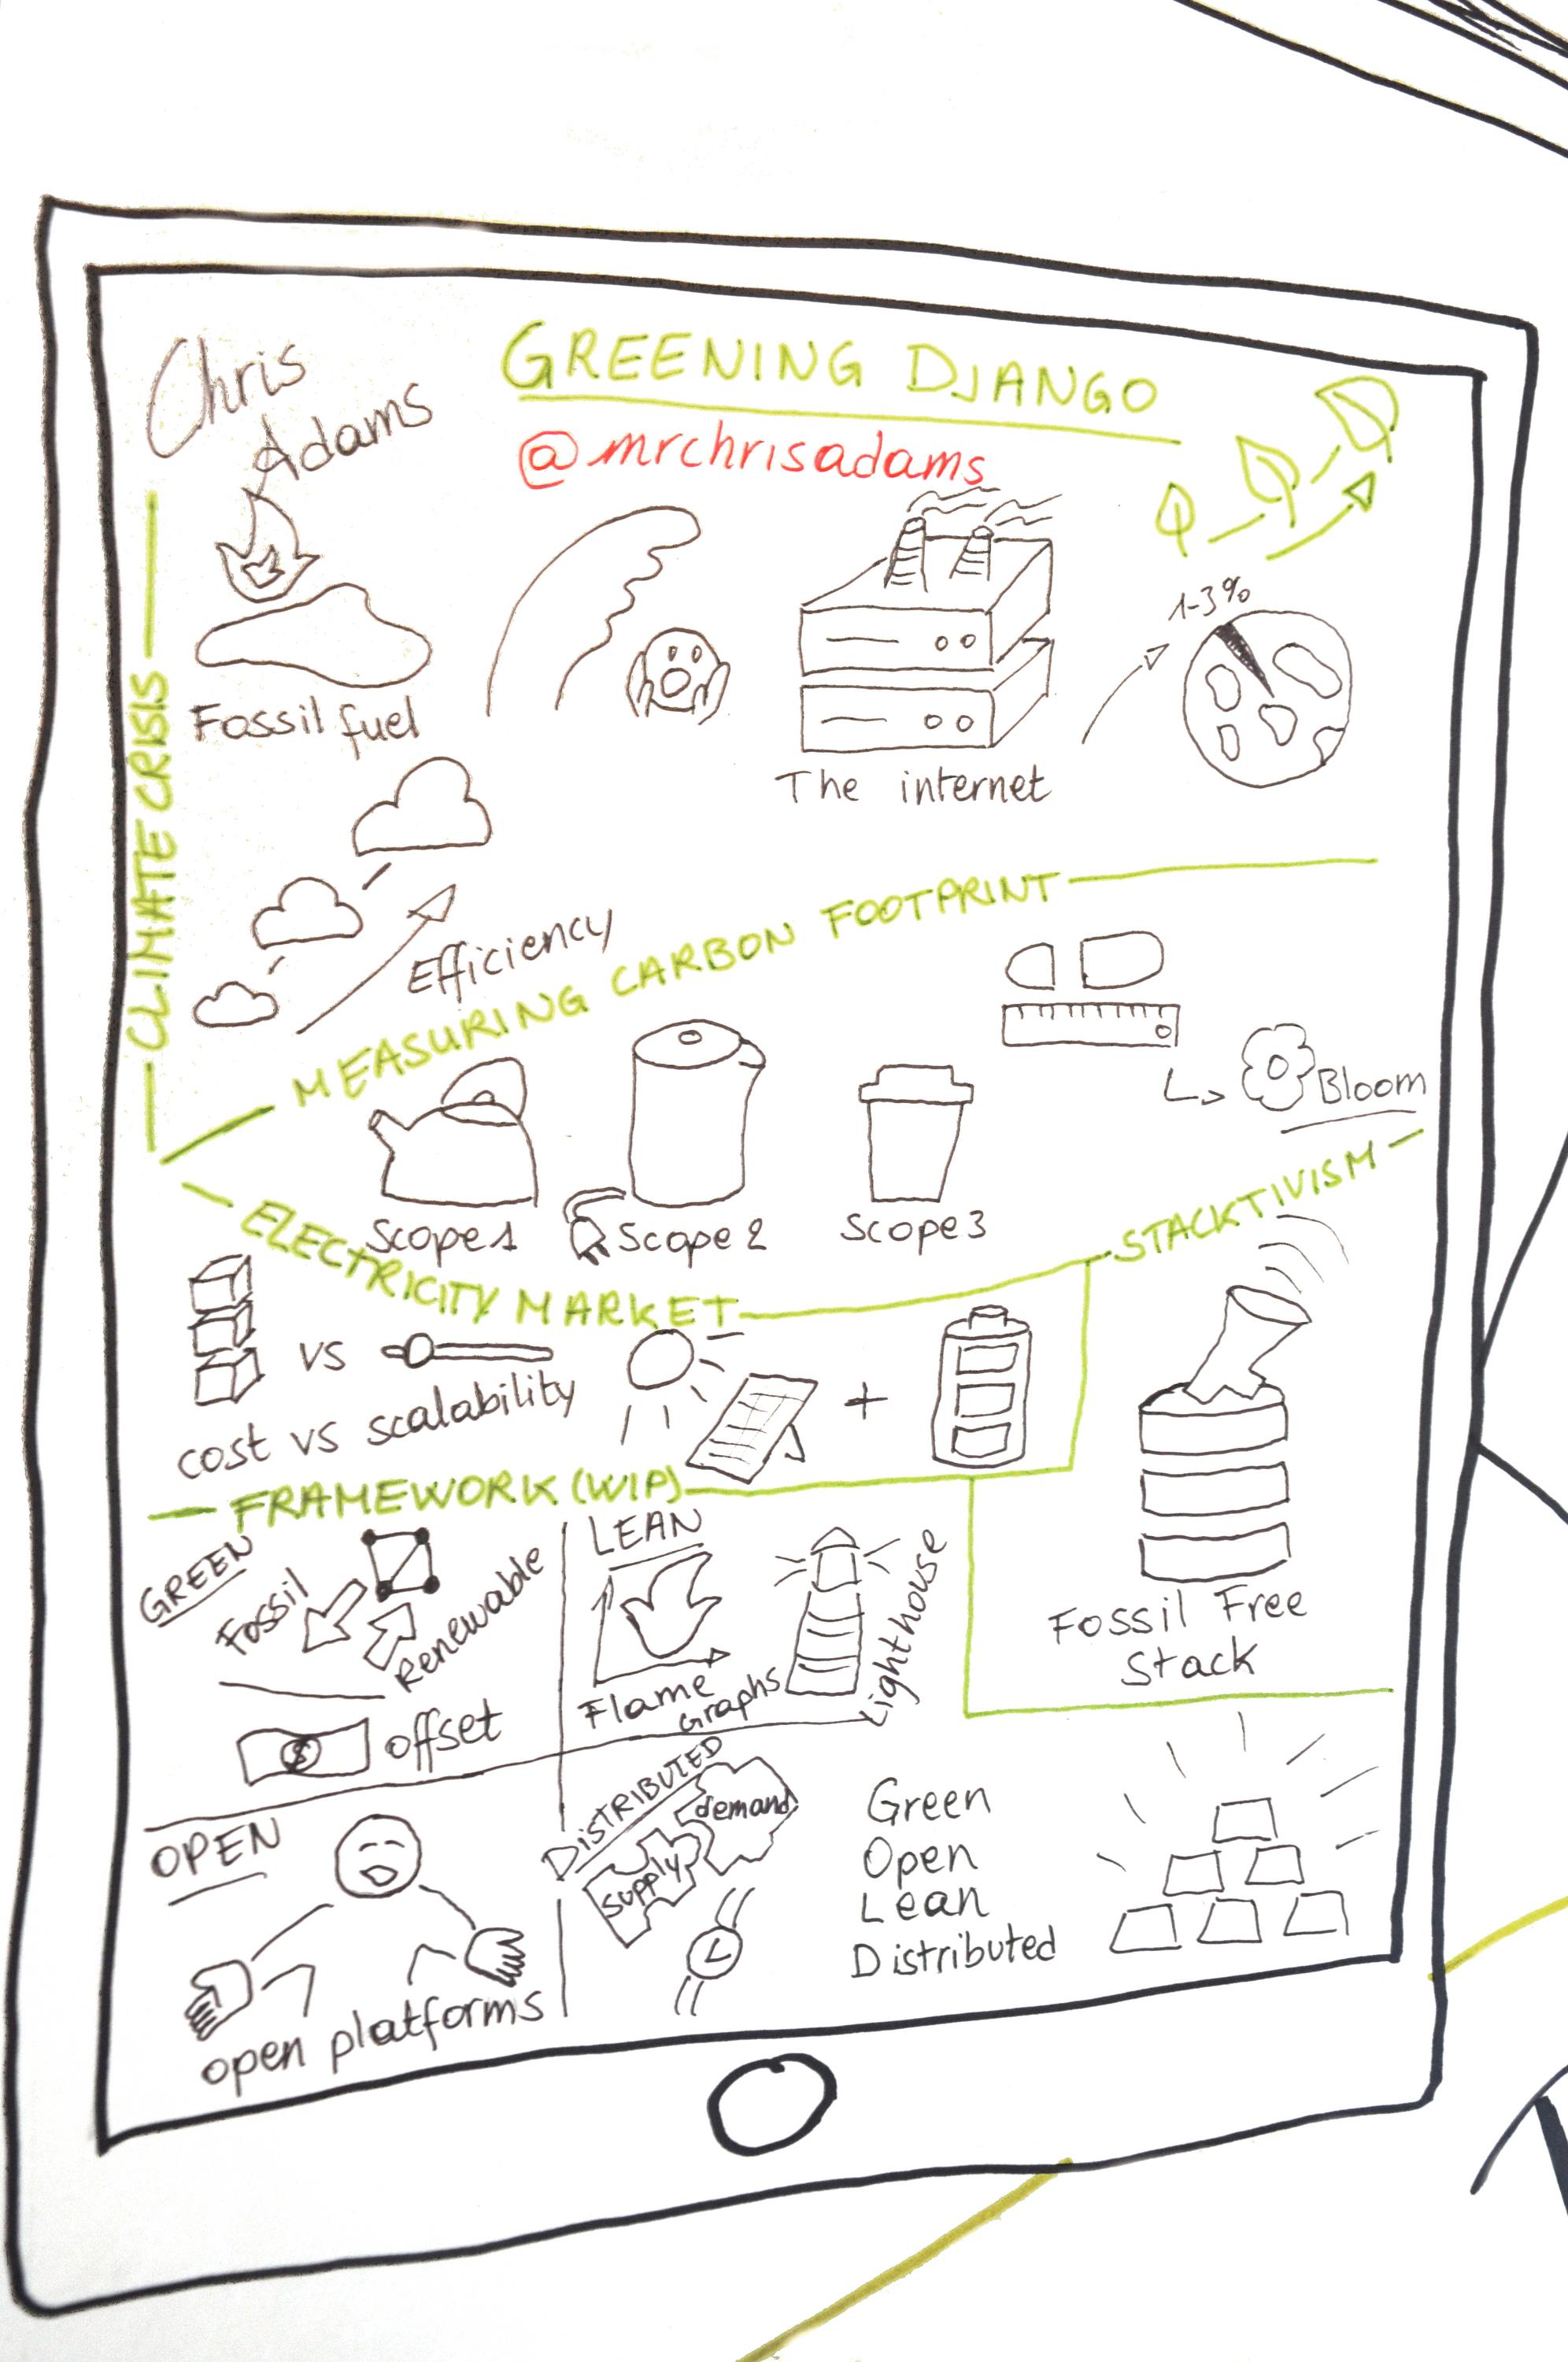 Chris
Adams
GREENING DJANGO
@mrchrisadams
CLIMATE CRISIS
Fossil fuel
The internet
1-3%
Efficiency
MEASURING CARBON FOOTPRINT
Bloom
Scope 1
Scope 2
Scope 3
ELECTRICITY MARKET
vs
+
cost vs scalability
STACKTIVISM
Fossil Free
Stack
FRAMEWORK (WIP)
GREEN
Fossil
Renewable
$ offset
LEAN
Flame
Graphs
Lighthouse
OPEN
open platforms
DISTRIBUTED
supply
demand
Green
Open
Lean
Distributed